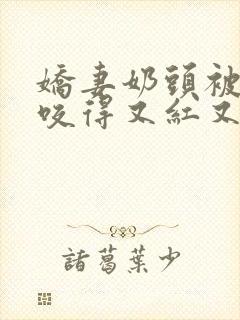 嬌妻奶頭被
咬得又紅又
諸葛葉少